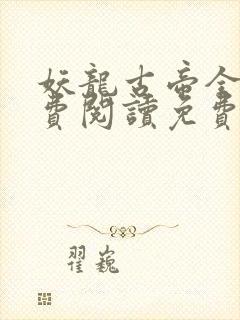 妖龍古帝全
費閱讀免費
翟巍